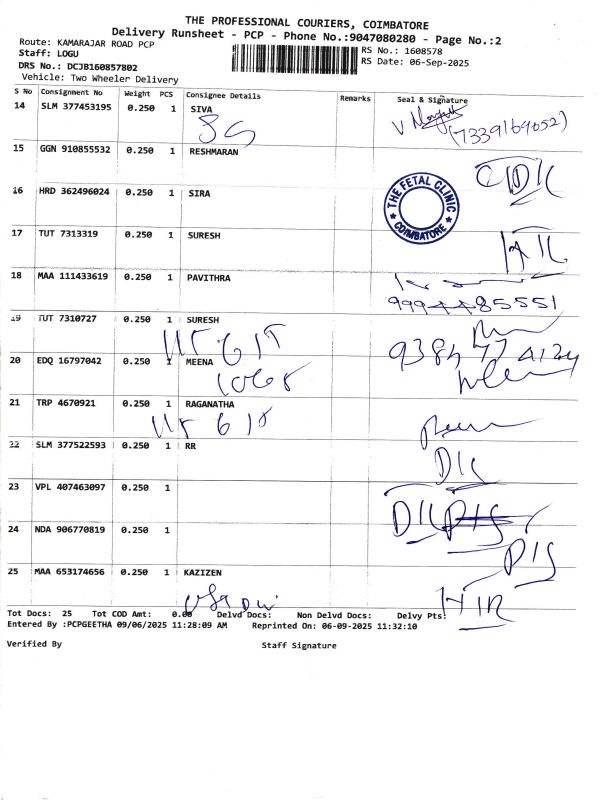 THE PROFESSIONAL COURIERS, COIMBATORE
Delivery Runsheet - PCP - Phone No.:9047080280 - Page No.:2
Route: KAMARAJAR ROAD PCP RS No.: 1608578
Staff: LOGU RS Date: 06-Sep-2025
DRS No.: DCJB160857802
Vehicle: Two Wheeler Delivery
S No Consignment No Weight PCS Consignee Details Remarks Seal & Signature
14 SLM 377453195 0.250 1 SIVA
(7339169052)
15 GGN 910855532 0.250 1 RESHMARAN
16 HRD 362496024 0.250 1 SIRA
THE FETAL CLINIC
COIMBATORE
17 TUT 7313319 0.250 1 SURESH
18 MAA 111433619 0.250 1 PAVITHRA
9994485551
19 TUT 7310727 0.250 1 SURESH
20 EDQ 16797042 0.250 1 MEENA
21 TRP 4670921 0.250 1 RAGANATHA
22 SLM 377522593 0.250 1 RR
23 VPL 407463097 0.250 1
24 NDA 906770819 0.250 1
25 MAA 653174656 0.250 1 KAZIZEN
Tot Docs: 25 Tot COD Amt: 0.00 Delvd Docs: Non Delvd Docs: Delvy Pts:
Entered By :PCPGEETHA 09/06/2025 11:28:09 AM Reprinted On: 06-09-2025 11:32:10
Verified By Staff Signature